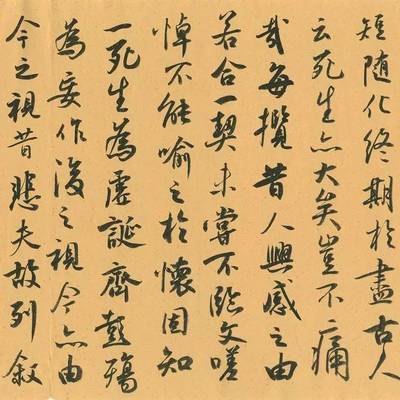 短随化终期於盡古人
云死生亦大矣豈不痛
哉每攬昔人興感之由
若合一契未嘗不臨文嗟
悼不能喻之於懷固知
一死生為虛誕齊彭殤
為妄作後之視今亦由
今之視昔悲夫故列叙